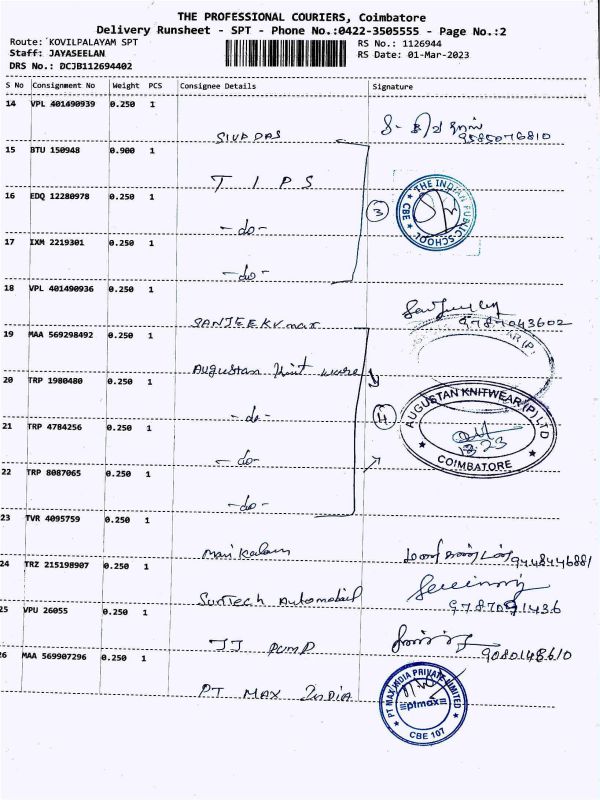 THE PROFESSIONAL COURIERS, Coimbatore
Delivery Runsheet - SPT - Phone No.:0422-3505555 - Page No.:2
Route: KOVILPALAYAM SPT RS No.: 1126944
Staff: JAYASEELAN RS Date: 01-Mar-2023
DRS No.: DCJB112694402
S No Consignment No Weight PCS Consignee Details Signature
14 VPL 401490939 0.250 1
SIVADAS 9585076810
15 BTU 150948 0.900 1
T I P S
16 EDQ 12280978 0.250 1
-do-
3
THE INDIAN PUBLIC SCHOOL
CBE
17 IXM 2219301 0.250 1
-do-
18 VPL 401490936 0.250 1
SANJEEKUmar 9787043602
19 MAA 569298492 0.250 1
WEAR (P)
Augustan Knit wure
20 TRP 1980480 0.250 1
-do-
4
AUGUSTAN KNITWEAR (P) LTD
COIMBATORE
21 TRP 4784256 0.250 1
-do-
22 TRP 8087065 0.250 1
-do-
23 TVR 4095759 0.250 1
Mani Kalam 9448446881
24 TRZ 215198907 0.250 1
SunTech Automobil 9787091436
25 VPU 26055 0.250 1
JJ PUMP 9080148610
26 MAA 569907296 0.250 1
PT MAX INDIA
PT MAX INDIA PRIVATE LIMITED
ptmax
CBE 107